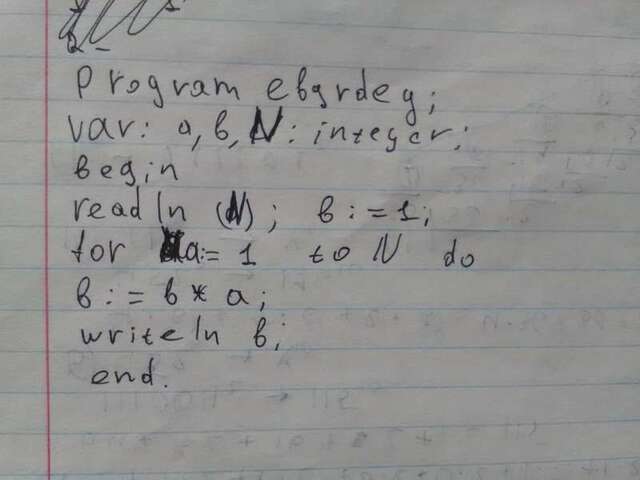 Program ebgrdeg;
var: a, b, N: integer;
begin
readln (N); b := 1;
for a:= 1 to N do
b := b * a;
writeln b;
end.